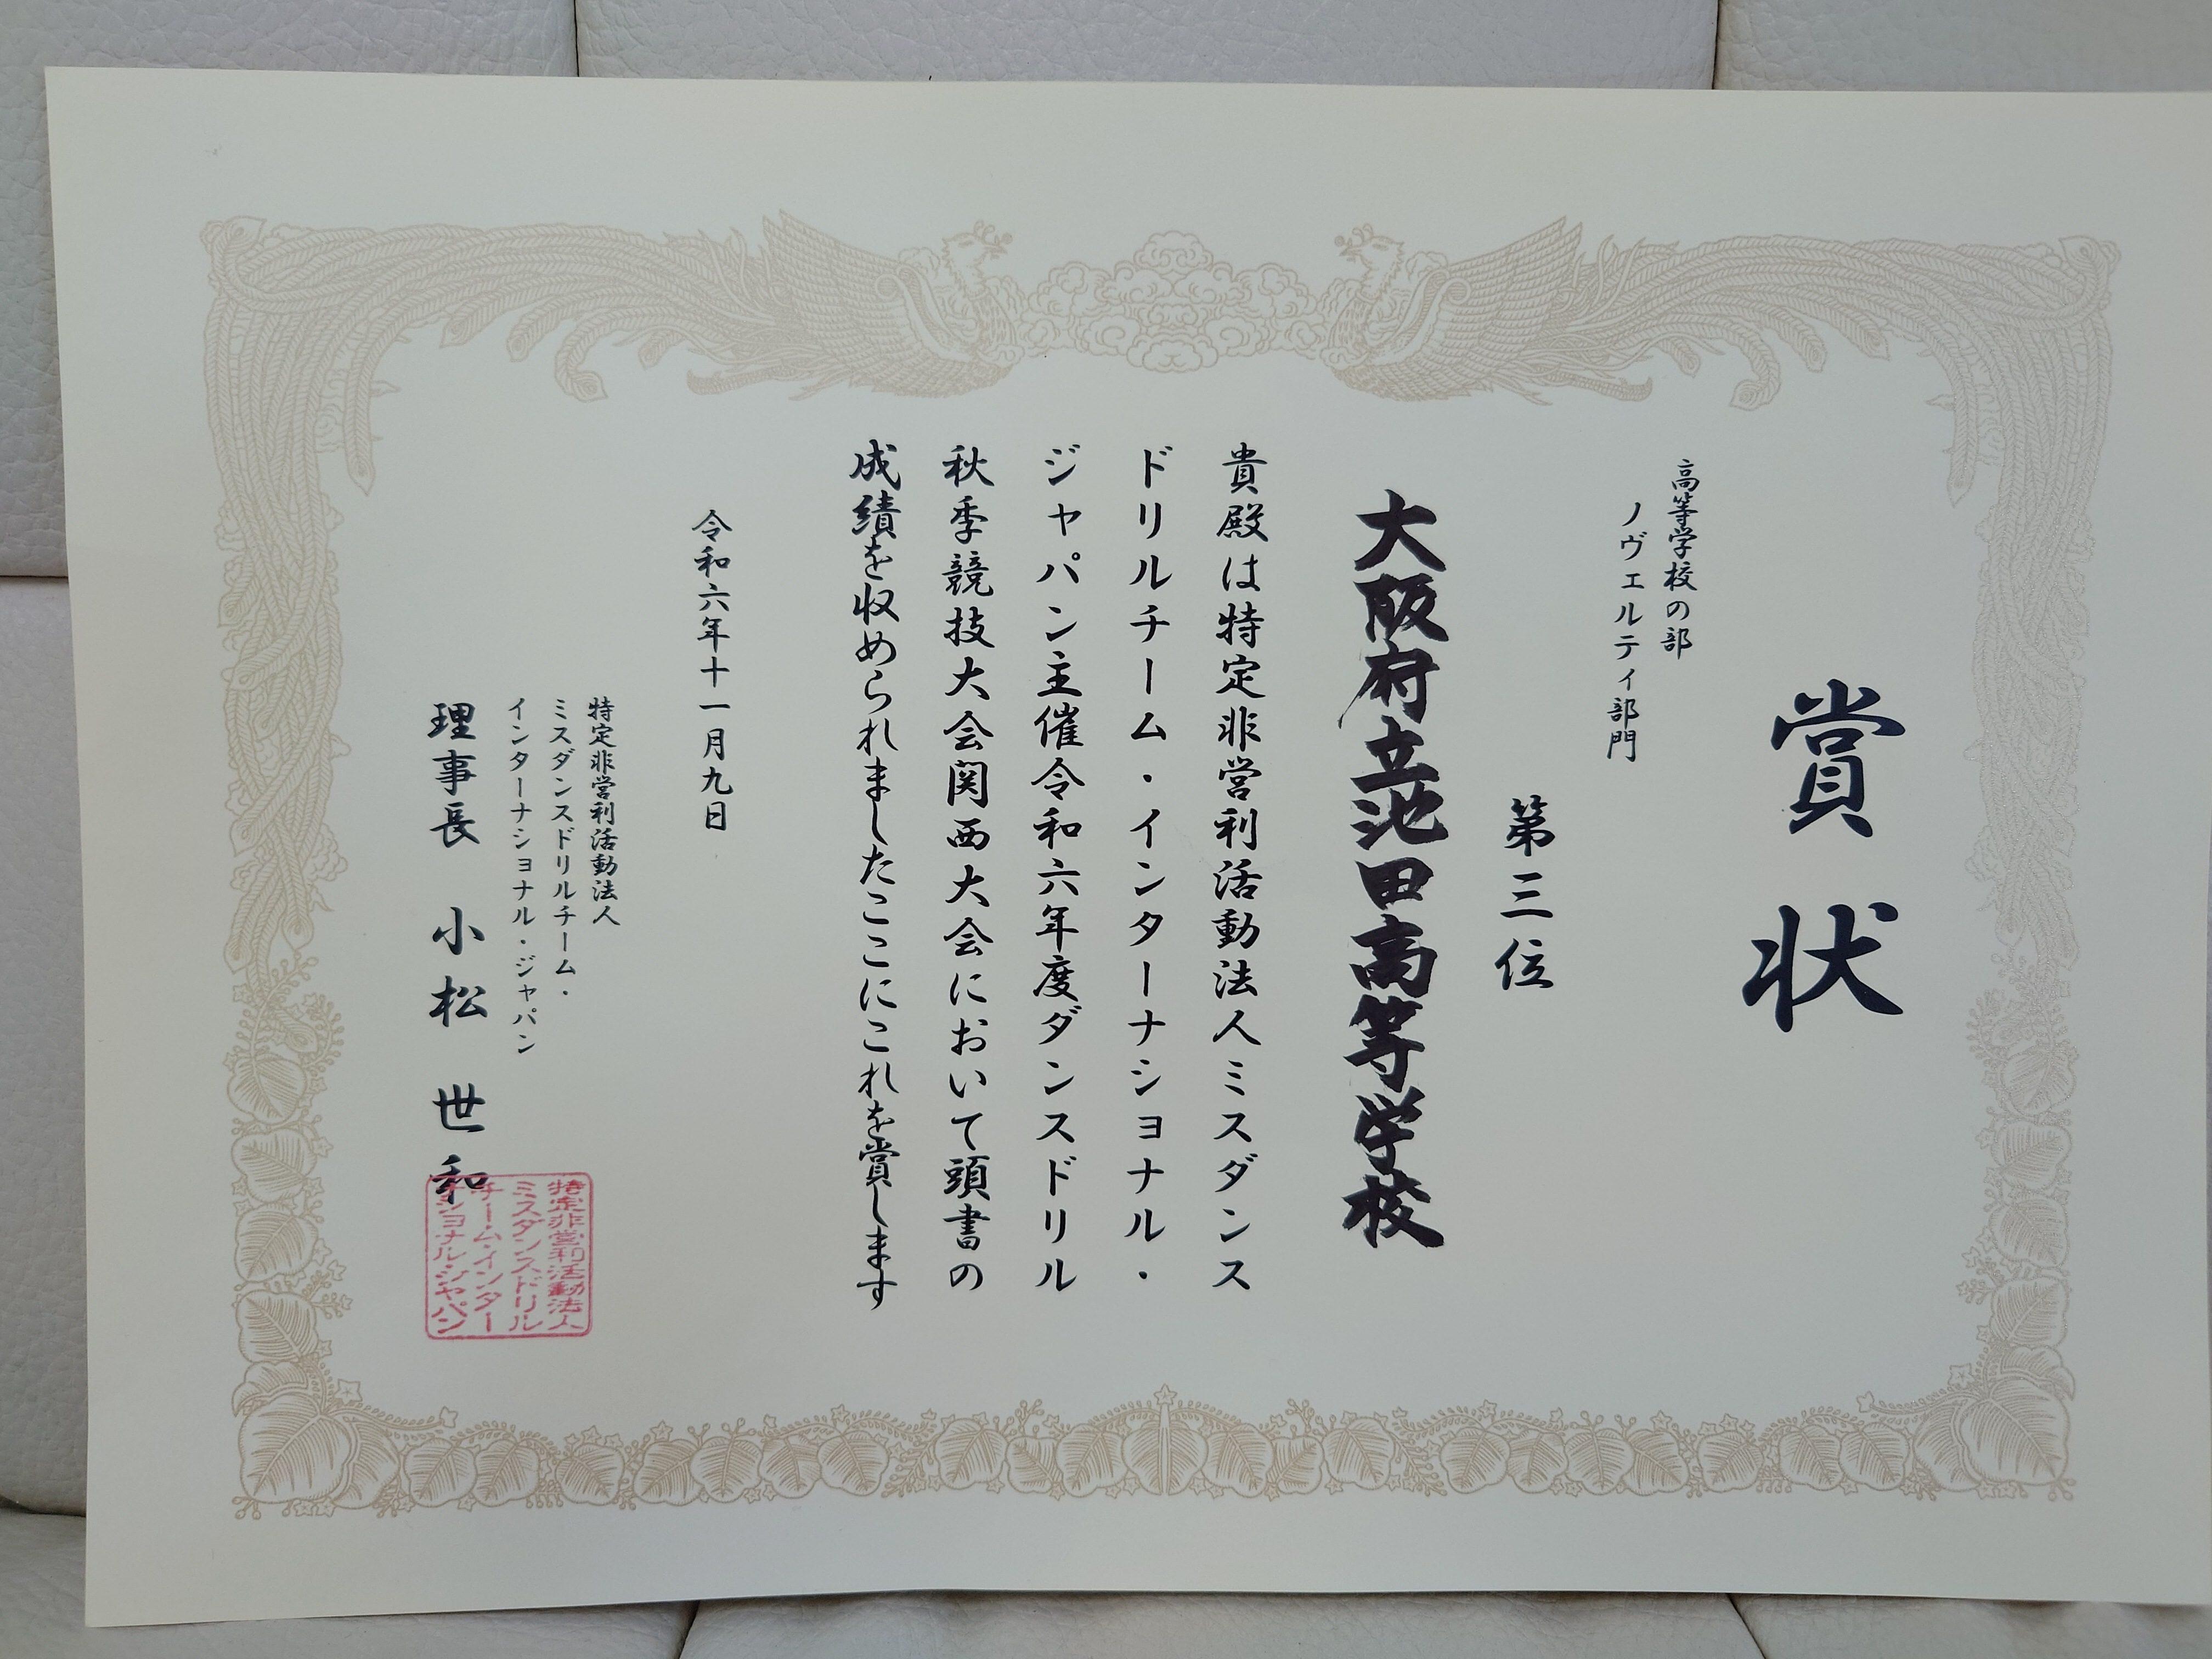 賞状
高等学校の部
ノヴェルティ部門
第三位
大阪府立池田高等学校
貴殿は特定非営利活動法人ミスダンス
ドリルチーム・インターナショナル・
ジャパン主催令和六年度ダンスドリル
秋季競技大会関西大会において頭書の
成績を収められましたここにこれを賞します
令和六年十一月九日
特定非営利活動法人
ミスダンスドリルチーム・
インターナショナル・ジャパン
理事長 小松 世和
特定非営利活動法人
ミスダンスドリル
チーム・インター
ナショナル・ジャパン